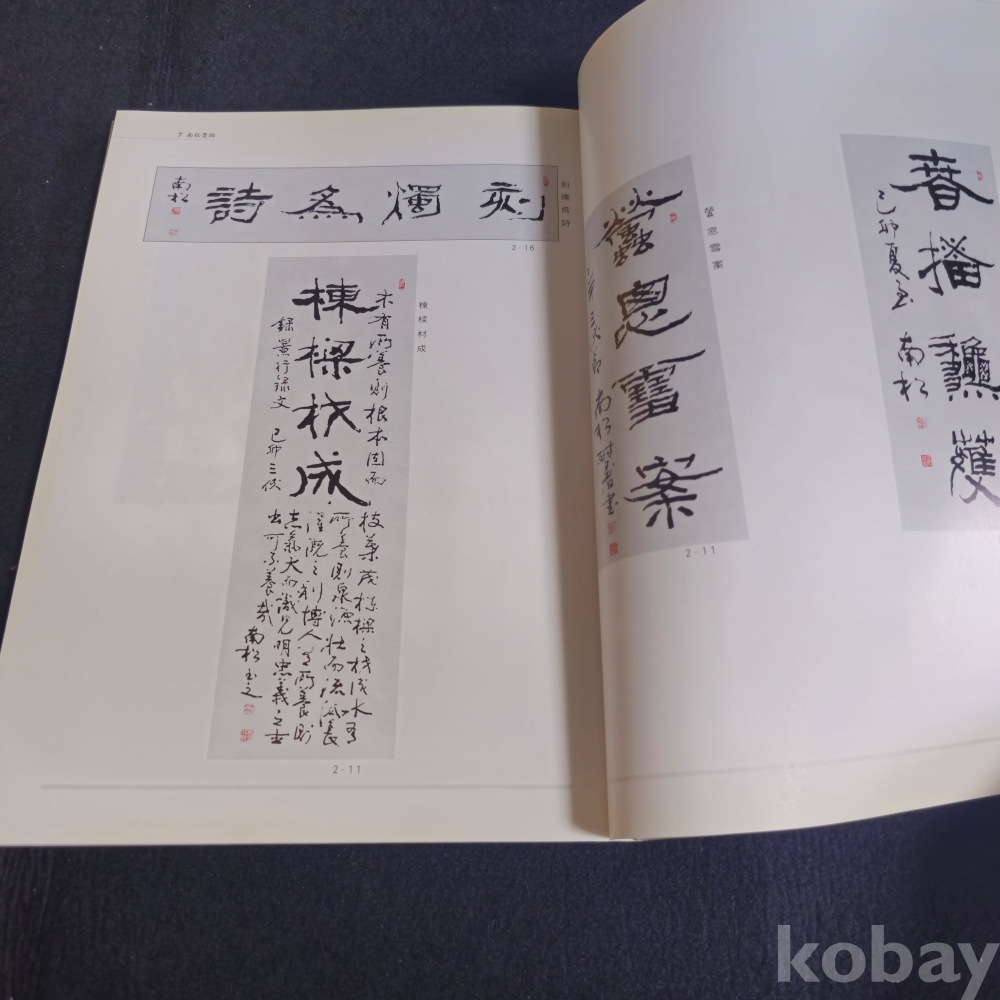 7 南松墨
刻燭爲詩
南松
刻燭爲詩
2-16
棟樑材成
棟樑材成
木有所養則根本固而
枝葉茂棟樑之材成水有
所養則泉源壯而流派長
灌漑之利博人有所養則
志氣大而識見明忠義之士
出可不養哉
錄景行錄文 己卯三伏
南松書之
2-11
螢窓雪案
螢窓雪案
南松
2-11
春播秋穫
己卯夏 南松
kobay